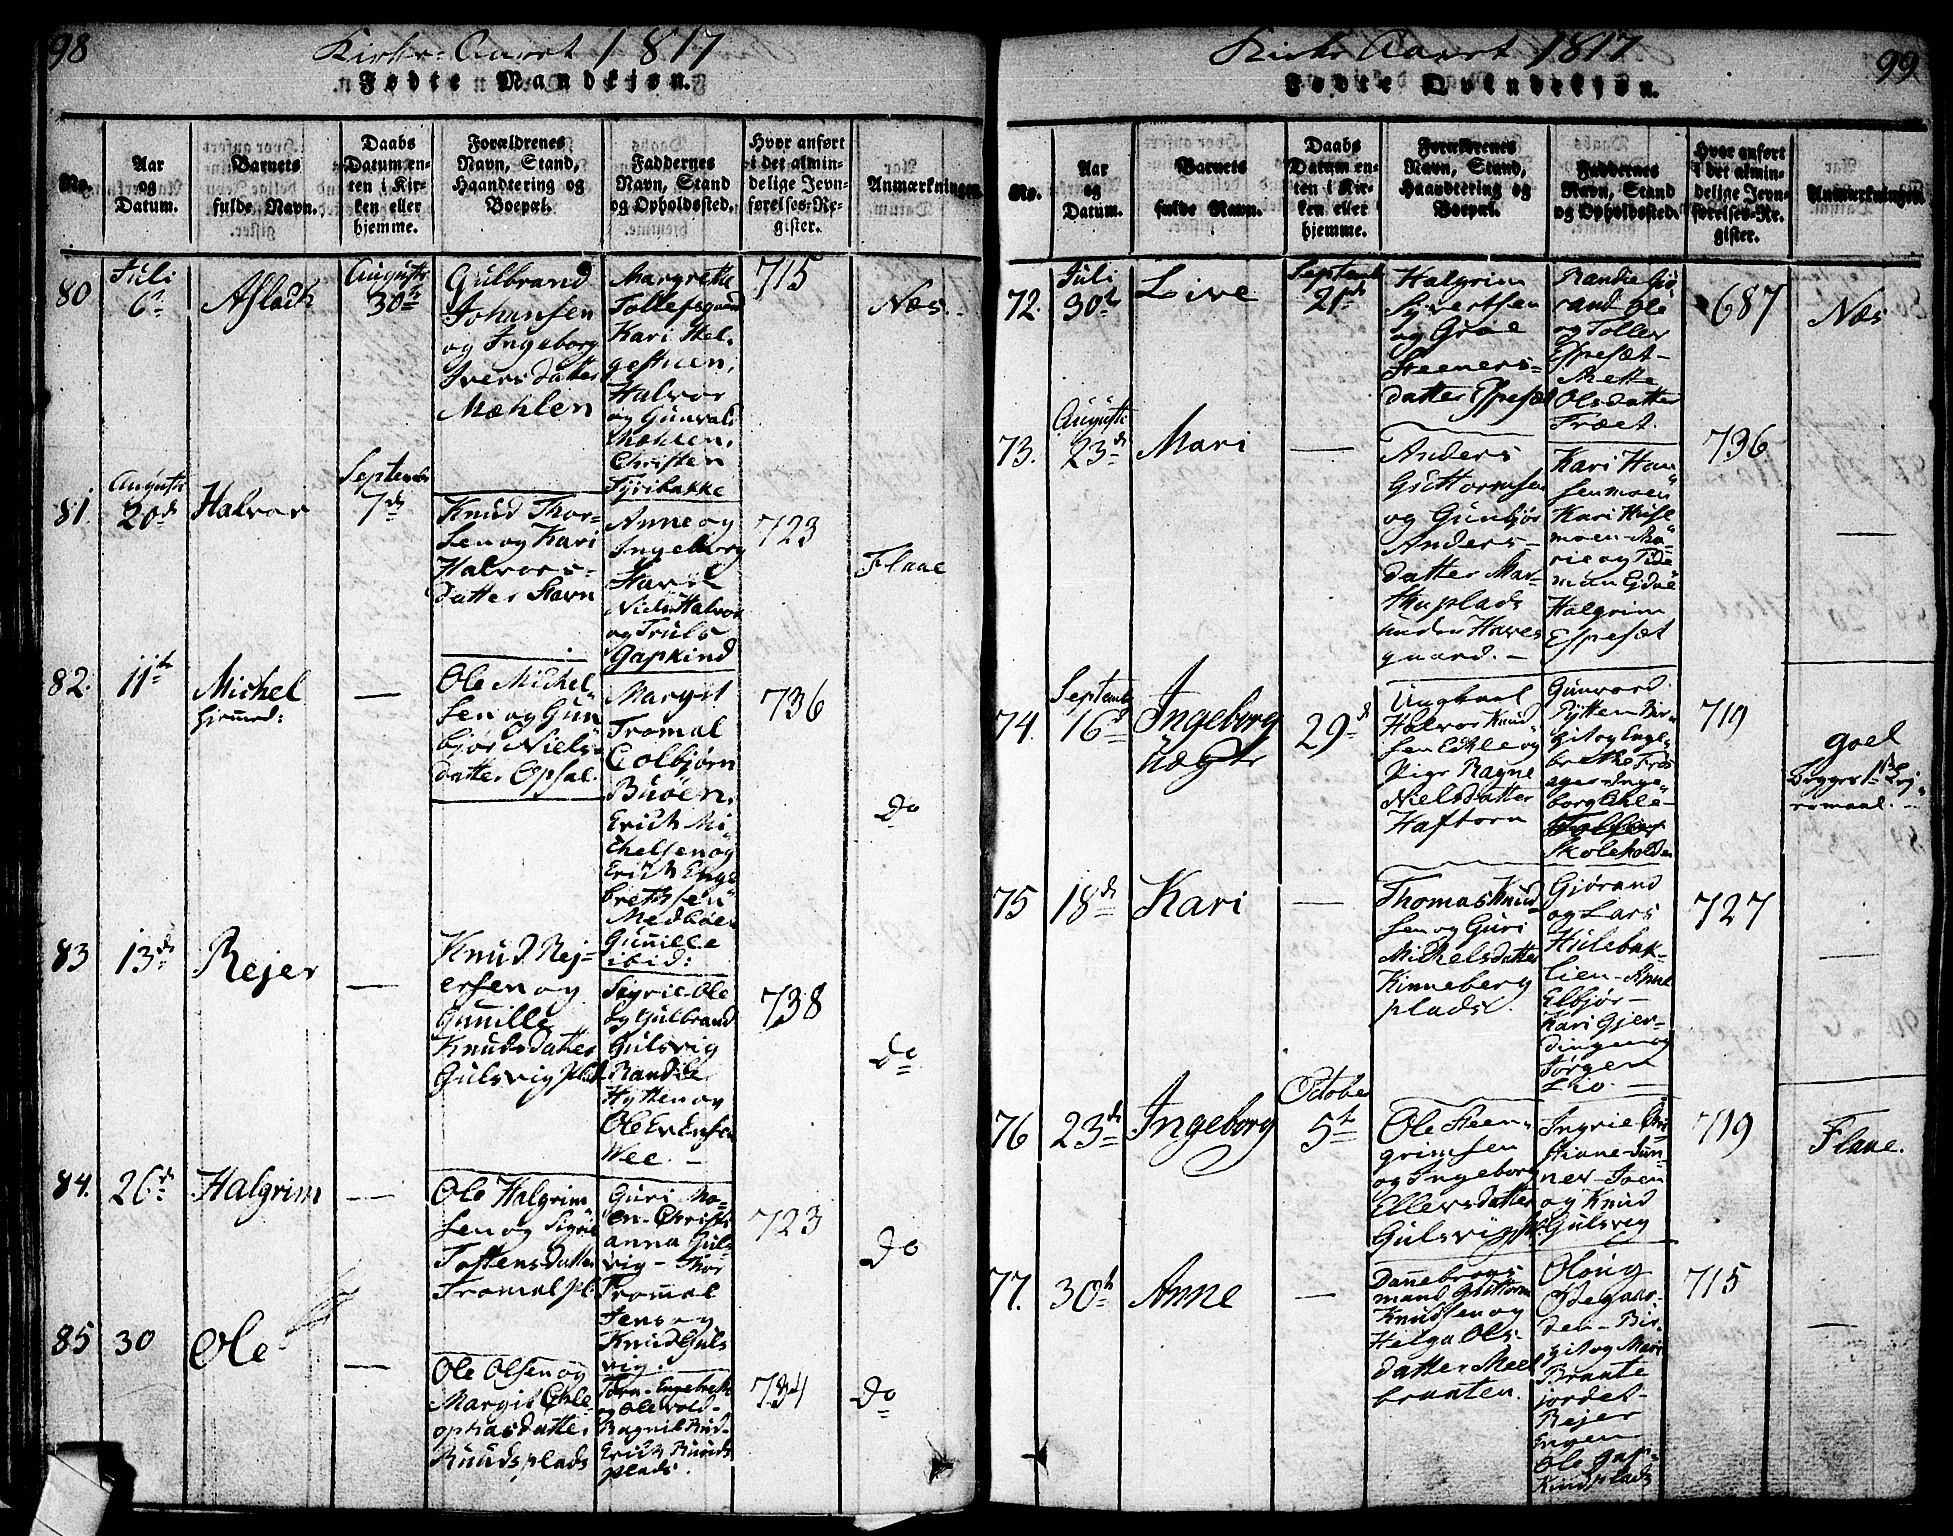 98
Kirke-Aaret 1817
Fødte Mandkjøn.
No.
Aar
og
Datum.
Barnets
fulde Navn.
Daabs
Datum en-
ten i Kir-
ken eller
hjemme.
Forældrenes
Navn, Stand,
Haandtering og
Boepæl.
Faddernes
Navn, Stand
og Opholdssted.
Hvor anført
i det almin-
delige Jevn-
førelses-Re-
gister.
Anmærkninger.
80
Juli
6
Aslack
Augusti
30
Gulbrand
Johansen
og Ingeborg
Iversdatter
Mæhlen
Margrethe
Tollefsgaard
Kari Hel-
gestuen,
Halvor
og Gunvald
Mæhlen,
Christen
Fyribakke
715
Næs.
81.
Augusti
20d
Halvor
Septembr
7d
Knud Thor-
sen og Kari
Halvors-
datter Stavn
Anne og
Ingeborg
Niels Halvor
og Truls
Gapkind
723
Flaae
82.
11te
Michel
—
Ole Michel-
sen og Gun
bjør Niels-
datter Opsal.
Margit
Tromal
Colbjørn
Buøen,
Erich Mi-
chelsen og
Erich Enge
brethsen
Medbøen
Gunille
ibid:
736
Do
83
13d
Rejer
—
Knud Rej-
ersen og
Gunille
Knudsdatter
Gulsvig plad
Sigrie Ole
og Gulbrand
Gulsvig
Randile
Hytten og
Ole Evensen
Wee. —
738
Do
84.
26d
Halgrim
—
Ole Halgrim
sen og Sigrie
Tostensdatter
Tromal pl.
Guri Mo-
en-Christi
anna Guls
vig — Thor
Tromal
Jens og
Knud Guls
vig.
723
Do
85
30
Ole
—
Ole Olsen og
Margit Ehle-
ophasdatter
Ruudsplads
Torn-Engebreth
og Ole Wold-
Ragnil Ruud-
Erich Ruuds
plads.
734
Do
99
Kirke Aaret 1817
Fødte Qvindekjøn.
No.
Aar
og
Datum.
Barnets
fulde Navn.
Daabs
Datum en-
ten i Kir-
ken eller
hjemme.
Forældrenes
Navn, Stand,
Haandtering og
Boepæl.
Faddernes
Navn, Stand
og Opholdssted.
Hvor anført
i det almin-
delige Jevn-
førelses-Re-
gister.
Anmærkninger.
72.
Juli
30t
Live
Septemb
21d
Halgrim
Syvertsen
og Groe
Steeners-
datter Espesæt
Randie Gjø
rand Ole
og Tollef
Espesæt—
Mette
Olsdatter
Fræet.
687
Næs
73.
Augusti
23d
Mari
—
Anders
Guttormsen
og Gunbjør
Anders-
datter Mar-
thaplads
under Haves
gaard. —
Kari Han
senmoen
Kari
moen-Ma-
rie og Tide
man Eidne
Halgrim
Espesæt
736
—
74.
Septemb
16d
Ingeborg
Uægte
29d
Ungkarl
Halvor Knud
sen Ehle og
Pige Ragne
Nielsdatter
Haftorn
Gunvord
Rytten Bir-
git og Enge
brethe Fros
ager-Inge
borg Ehle-
Skoleholder
719
goel
Begges 1ste Lej-
ermaal. —
75
18d
Kari
—
Thomas Knud
sen og Guri
Michelsdatter
Kinneberg
plads.
Gjørand
og Lars
Hulebak-
lien-Anne
Elbjør-
Kari Gjer-
dingen og
Jørgen
Lio. —
727
—
76
23d
Ingeborg
Octobe
5t
Ole Steen-
grimsen
og Ingeborg
Ellersdatter
Gulsvigpl.
Ingrie Chri
stiane-Gun-
ner-Iven
og Knud
Gulsvig
719
Flaae.
77.
30t
Anne
—
Dannebrogs
mand Guttorm
Knudsen og
Helga Ols-
datter Meel
braaten.
Oloug
Ødegaar-
den-Bir-
git og Mari
Braate
jordet-
Rejer
Engen
Ole Gap-
kindplads
715
—